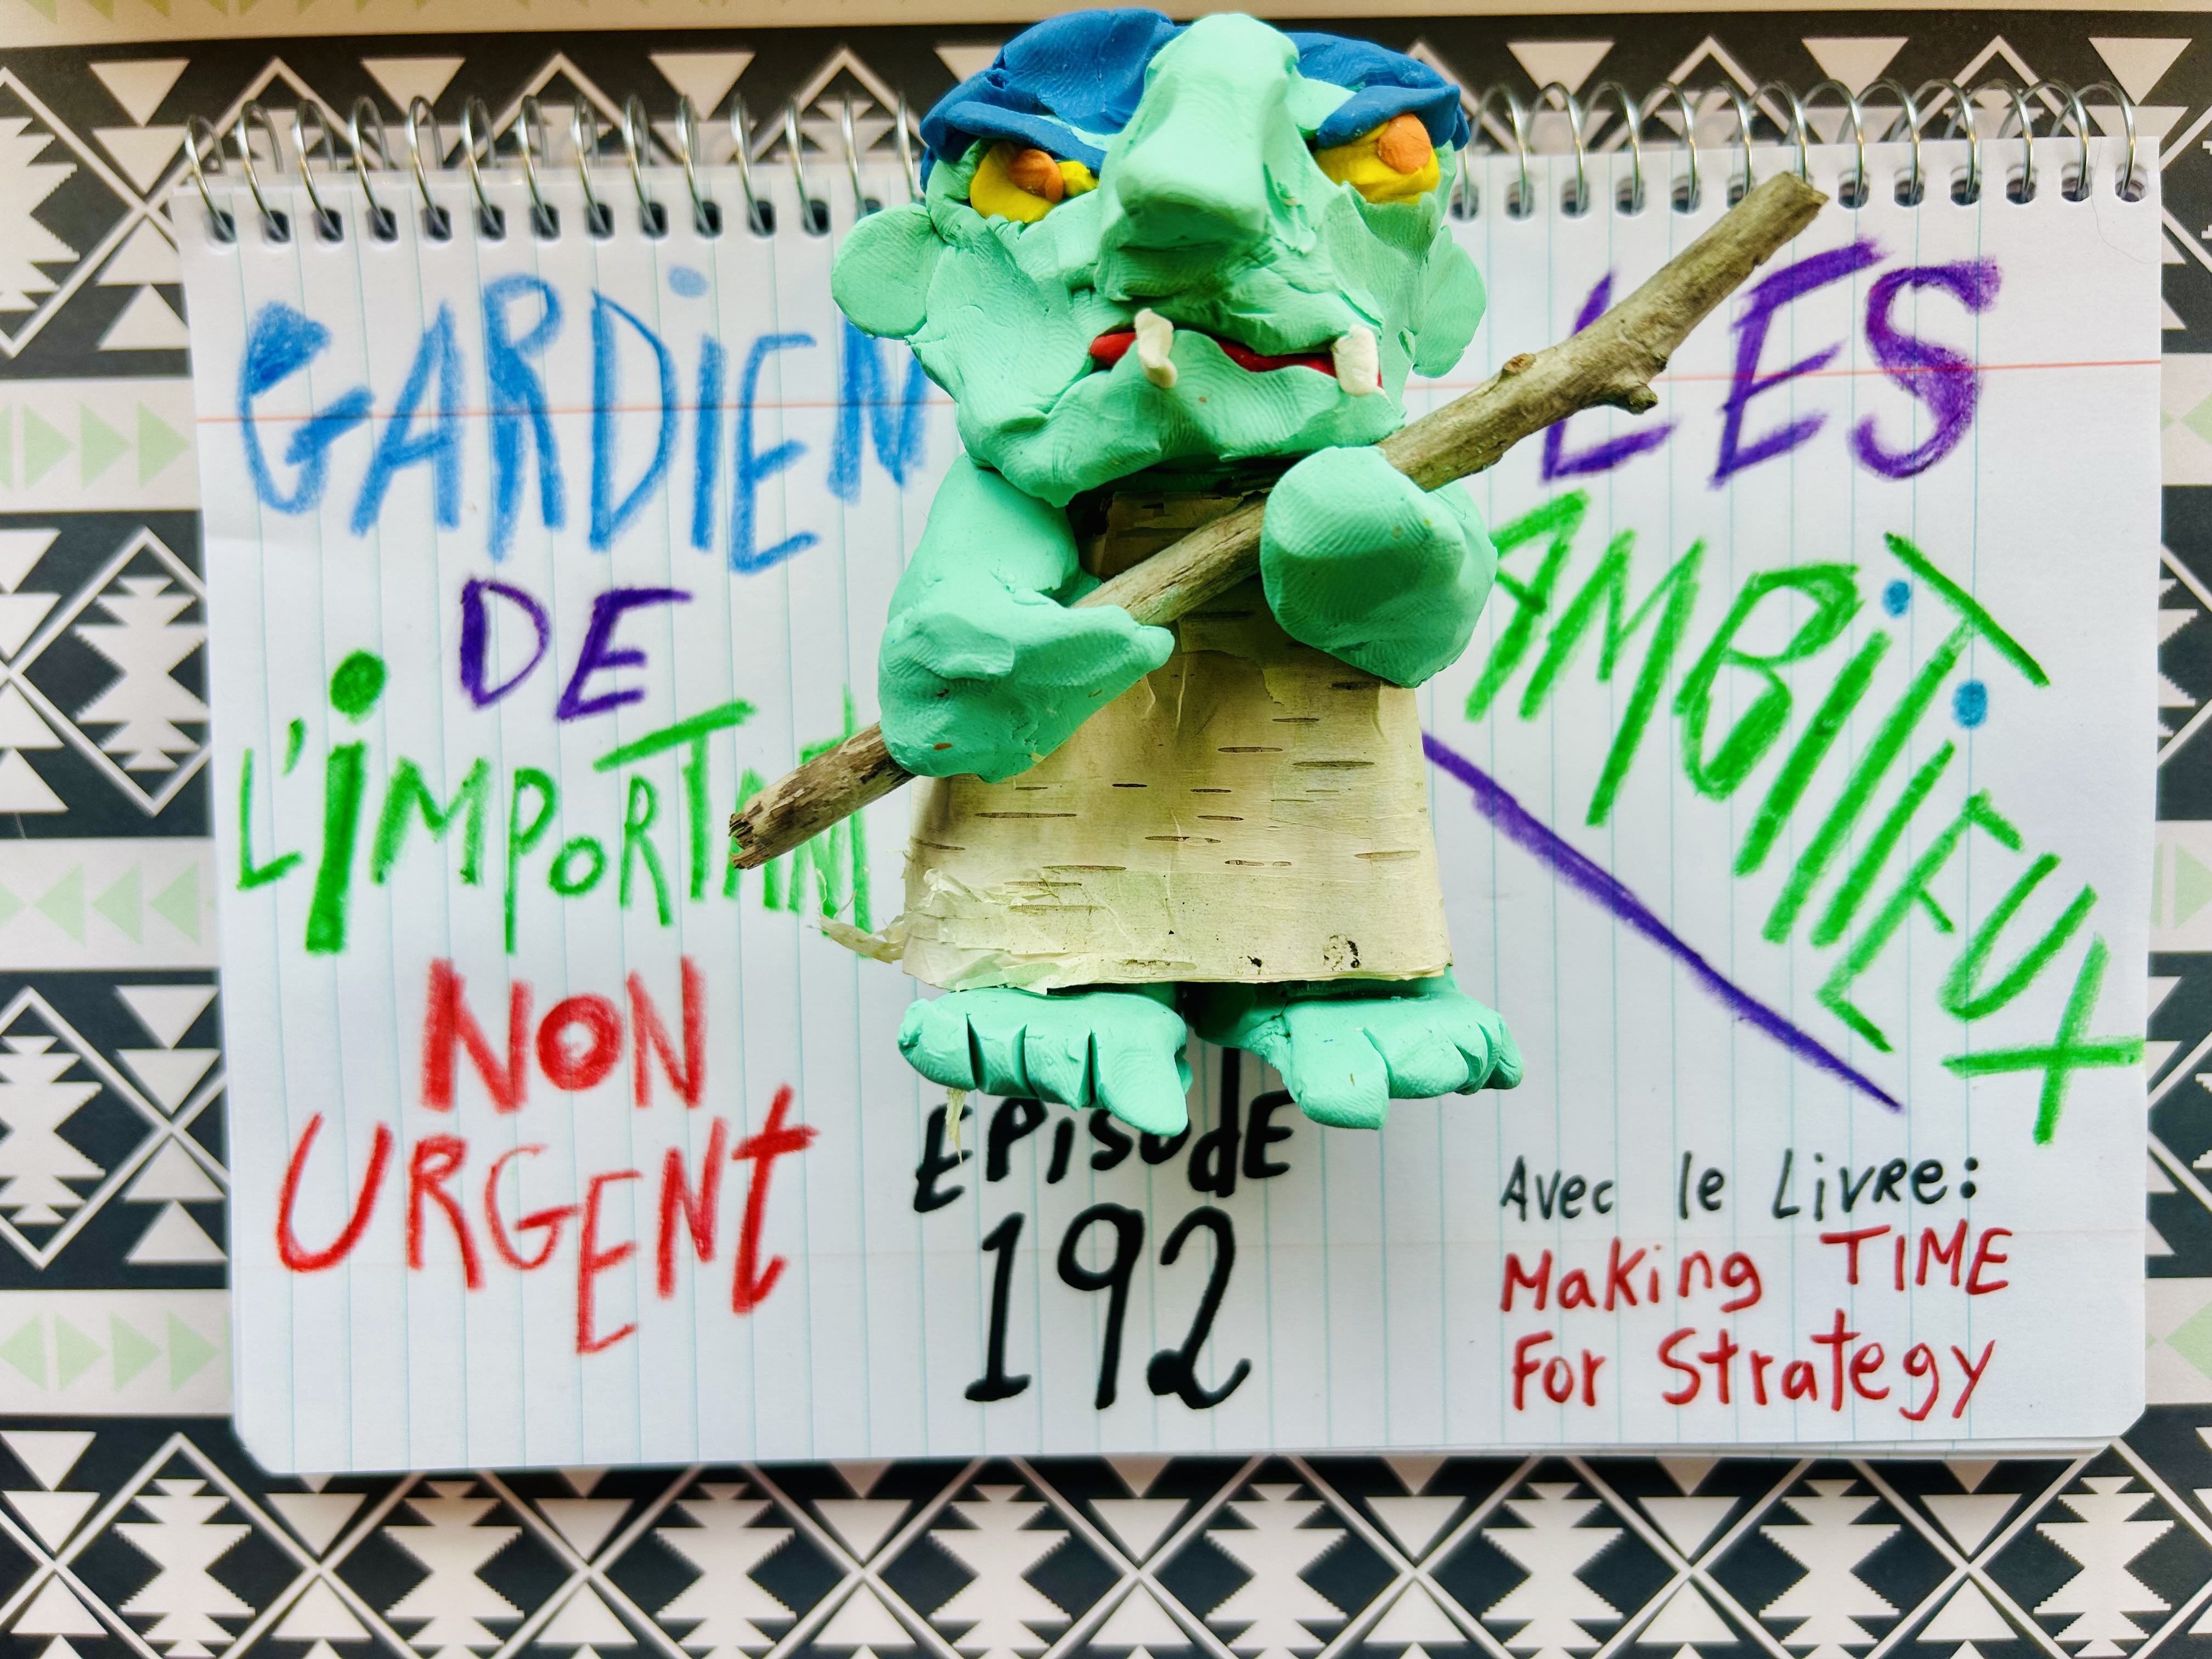 GARDiEN
DE
L'iMPoRTANT
NON
URGENt
LES
AMBiTiEUX
EPisodE
192
Avec le Livre:
Making TIME
For Strategy